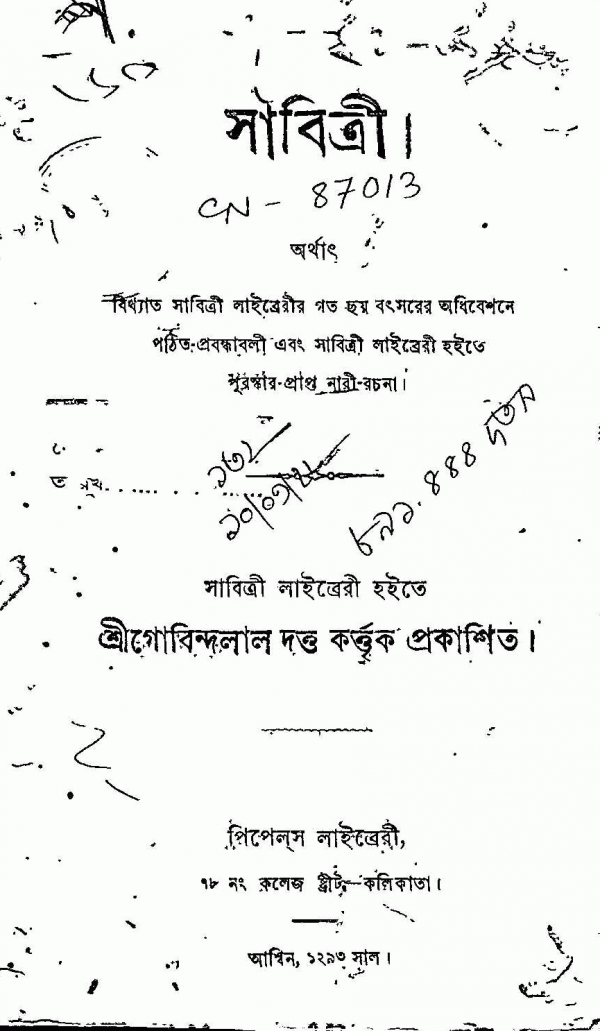 সাবিত্রী।
CN - 87013
অর্থাৎ
বিখ্যাত সাবিত্রী লাইব্রেরীর গত ছয় বৎসরের অধিবেশনে
পঠিত-প্রবন্ধাবলী এবং সাবিত্রী লাইব্রেরী হইতে
পুরস্কার-প্রাপ্ত নারী-রচনা।
৮৯১.৪৪৪ দত্ত
সাবিত্রী লাইব্রেরী হইতে
শ্রীগোবিন্দলাল দত্ত কর্ত্তৃক প্রকাশিত।
পিপেল্‌স লাইব্রেরী,
৭৮ নং কলেজ ষ্ট্রীট,—কলিকাতা।
আশ্বিন, ১২৯৩ সাল।